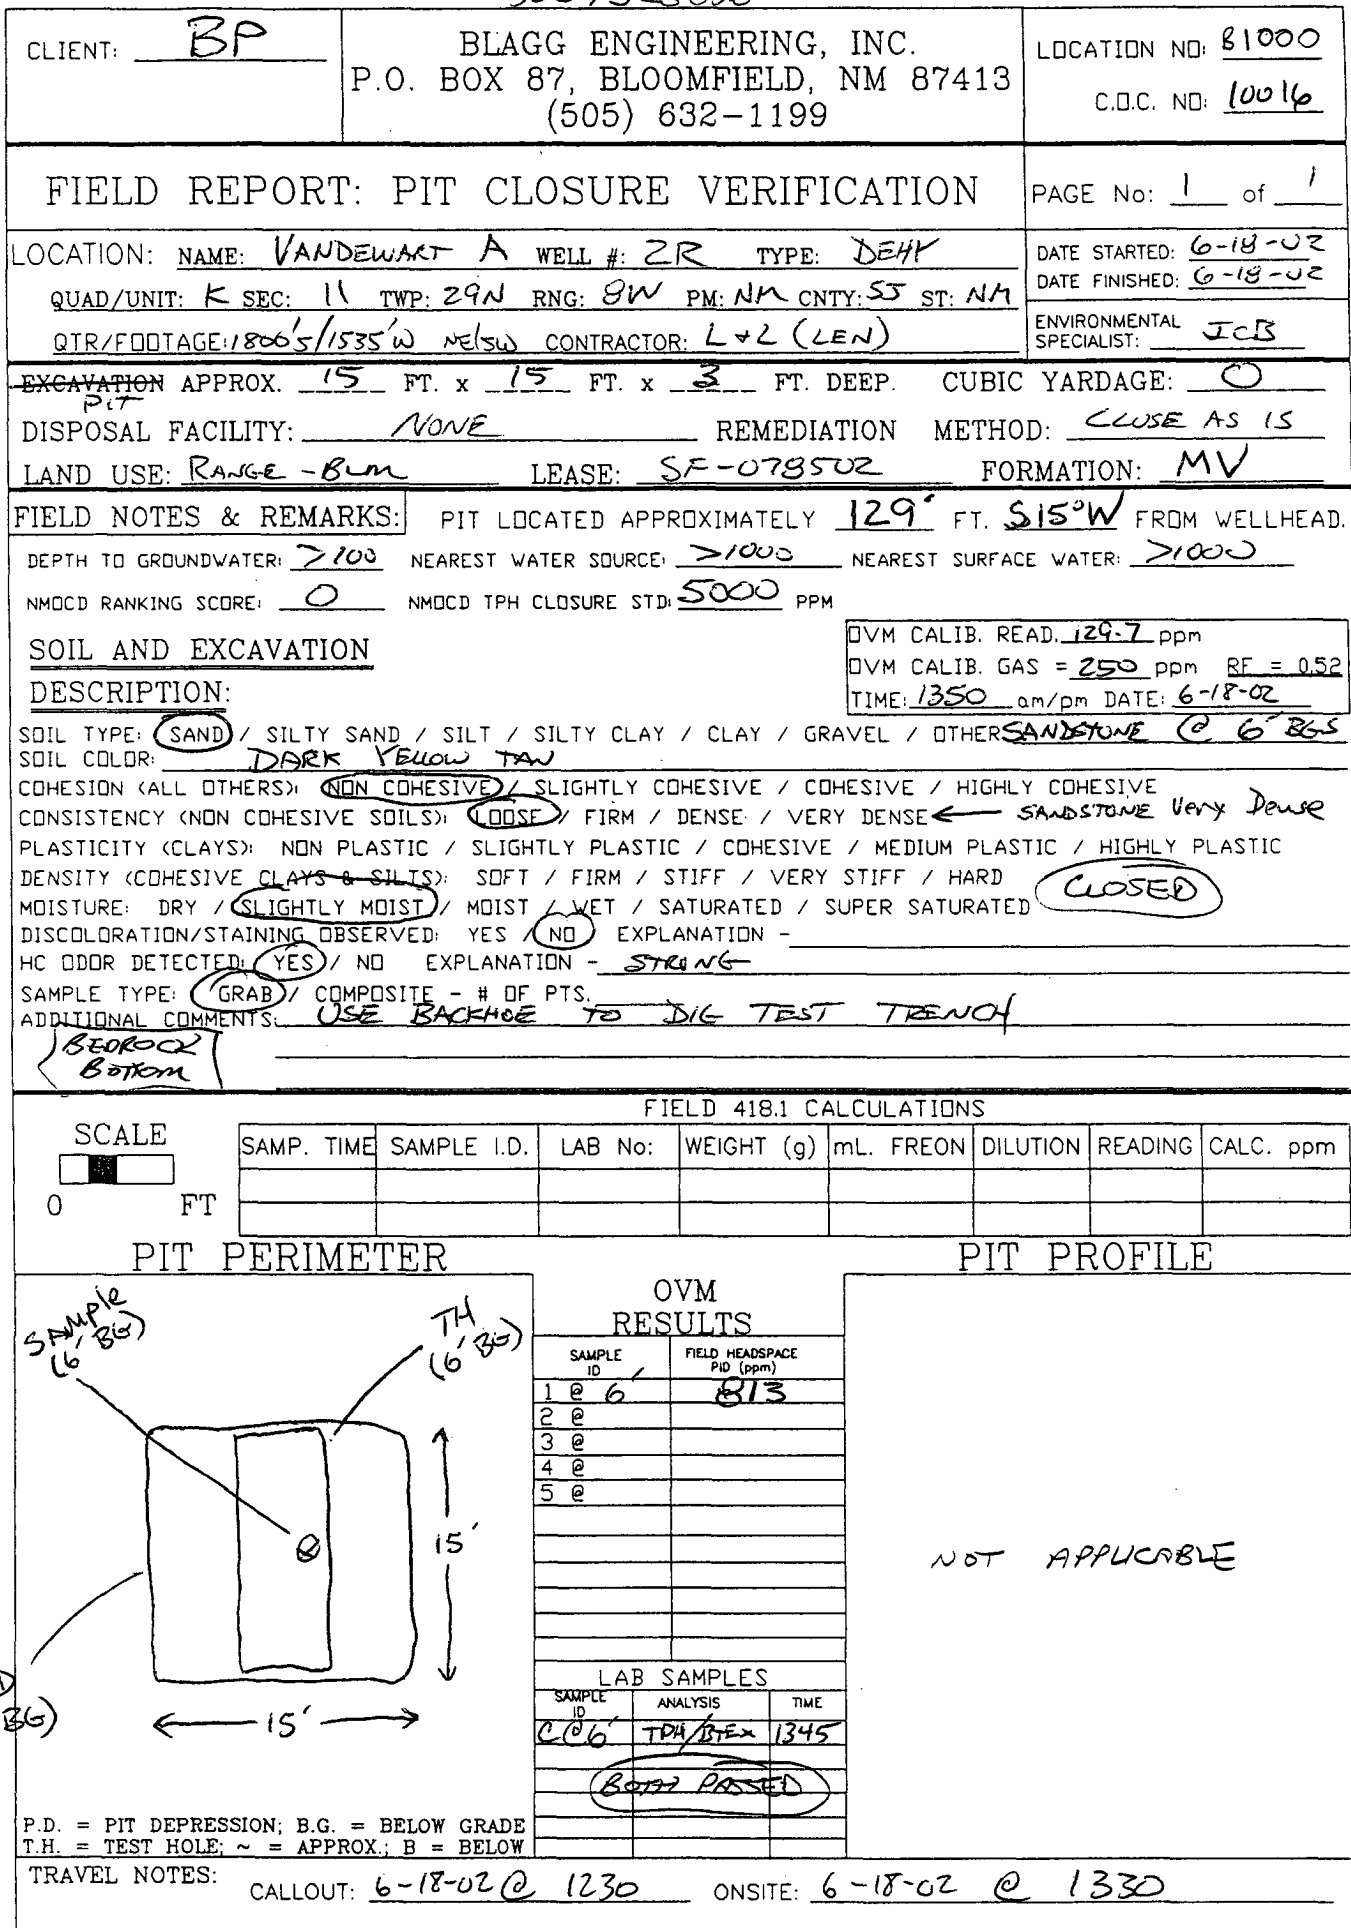 CLIENT: BP
BLAGG ENGINEERING, INC.
P.O. BOX 87, BLOOMFIELD, NM 87413
(505) 632-1199
LOCATION NO: B1000
C.O.C. NO: 10016
FIELD REPORT: PIT CLOSURE VERIFICATION
PAGE No: 1 of 1
LOCATION: NAME: VANDEWART A WELL #: 2R TYPE: DEHY
QUAD/UNIT: K SEC: 11 TWP: 29N RNG: 8W PM: NM CNTY: SJ ST: NM
QTR/FOOTAGE: 1800'S/1535'W NE/SW CONTRACTOR: L+L (LEN)
DATE STARTED: 6-18-02
DATE FINISHED: 6-18-02
ENVIRONMENTAL SPECIALIST: JCB
EXCAVATION APPROX. 15 FT. x 15 FT. x 3 FT. DEEP. CUBIC YARDAGE: 0
PIT
DISPOSAL FACILITY: NONE REMEDIATION METHOD: CLOSE AS IS
LAND USE: RANGE - BLM LEASE: SF-078502 FORMATION: MV
FIELD NOTES & REMARKS: PIT LOCATED APPROXIMATELY 129' FT. S15°W FROM WELLHEAD.
DEPTH TO GROUNDWATER: >100 NEAREST WATER SOURCE: >1000 NEAREST SURFACE WATER: >1000
NMOCD RANKING SCORE: 0 NMOCD TPH CLOSURE STD: 5000 PPM
SOIL AND EXCAVATION
DESCRIPTION:
OVM CALIB. READ. 129.7 ppm
OVM CALIB. GAS = 250 ppm RF = 0.52
TIME: 1350 am/pm DATE: 6-18-02
SOIL TYPE: SAND / SILTY SAND / SILT / SILTY CLAY / CLAY / GRAVEL / OTHER SANDSTONE @ 6' BGS
SOIL COLOR: DARK YELLOW TAN
COHESION (ALL OTHERS): NON COHESIVE / SLIGHTLY COHESIVE / COHESIVE / HIGHLY COHESIVE
CONSISTENCY (NON COHESIVE SOILS): LOOSE / FIRM / DENSE / VERY DENSE ← SANDSTONE Very Dense
PLASTICITY (CLAYS): NON PLASTIC / SLIGHTLY PLASTIC / COHESIVE / MEDIUM PLASTIC / HIGHLY PLASTIC
DENSITY (COHESIVE CLAYS & SILTS): SOFT / FIRM / STIFF / VERY STIFF / HARD
CLOSED
MOISTURE: DRY / SLIGHTLY MOIST / MOIST / WET / SATURATED / SUPER SATURATED
DISCOLORATION/STAINING OBSERVED: YES / NO EXPLANATION -
HC ODOR DETECTED: YES / NO EXPLANATION - STRONG
SAMPLE TYPE: GRAB / COMPOSITE - # OF PTS.
ADDITIONAL COMMENTS: USE BACKHOE TO DIG TEST TRENCH
BEDROCK
BOTTOM
FIELD 418.1 CALCULATIONS
SCALE
0 FT
SAMP. TIME SAMPLE I.D. LAB No: WEIGHT (g) mL. FREON DILUTION READING CALC. ppm
PIT PERIMETER
SAMPLE
(6' BG)
TH
(6' BG)
15'
15'
BG)
OVM
RESULTS
SAMPLE ID FIELD HEADSPACE PID (ppm)
1 @ 6' 813
2 @
3 @
4 @
5 @
LAB SAMPLES
SAMPLE ID ANALYSIS TIME
C@6' TPH/BTEX 1345
BOTH PASSED
PIT PROFILE
NOT APPLICABLE
P.D. = PIT DEPRESSION; B.G. = BELOW GRADE
T.H. = TEST HOLE; ~ = APPROX.; B = BELOW
TRAVEL NOTES: CALLOUT: 6-18-02 @ 1230 ONSITE: 6-18-02 @ 1330